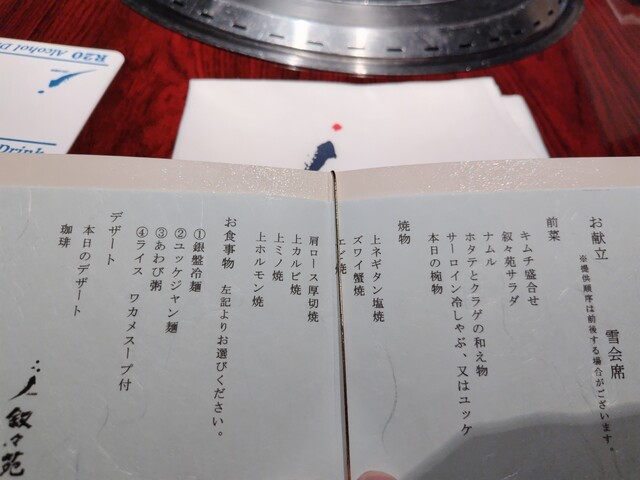 R20 Alcohol D
Drink
お献立　雪会席
※提供順序は前後する場合がございます。
前菜
キムチ盛合せ
叙々苑サラダ
ナムル
ホタテとクラゲの和え物
サーロイン冷しゃぶ、又はユッケ
本日の椀物
焼物
上ネギタン塩焼
ズワイ蟹焼
エビ焼
肩ロース厚切焼
上カルビ焼
上ミノ焼
上ホルモン焼
お食事物　左記よりお選びください。
①銀盤冷麺
②ユッケジャン麺
③あわび粥
④ライス　ワカメスープ付
デザート
本日のデザート
珈琲
叙々苑